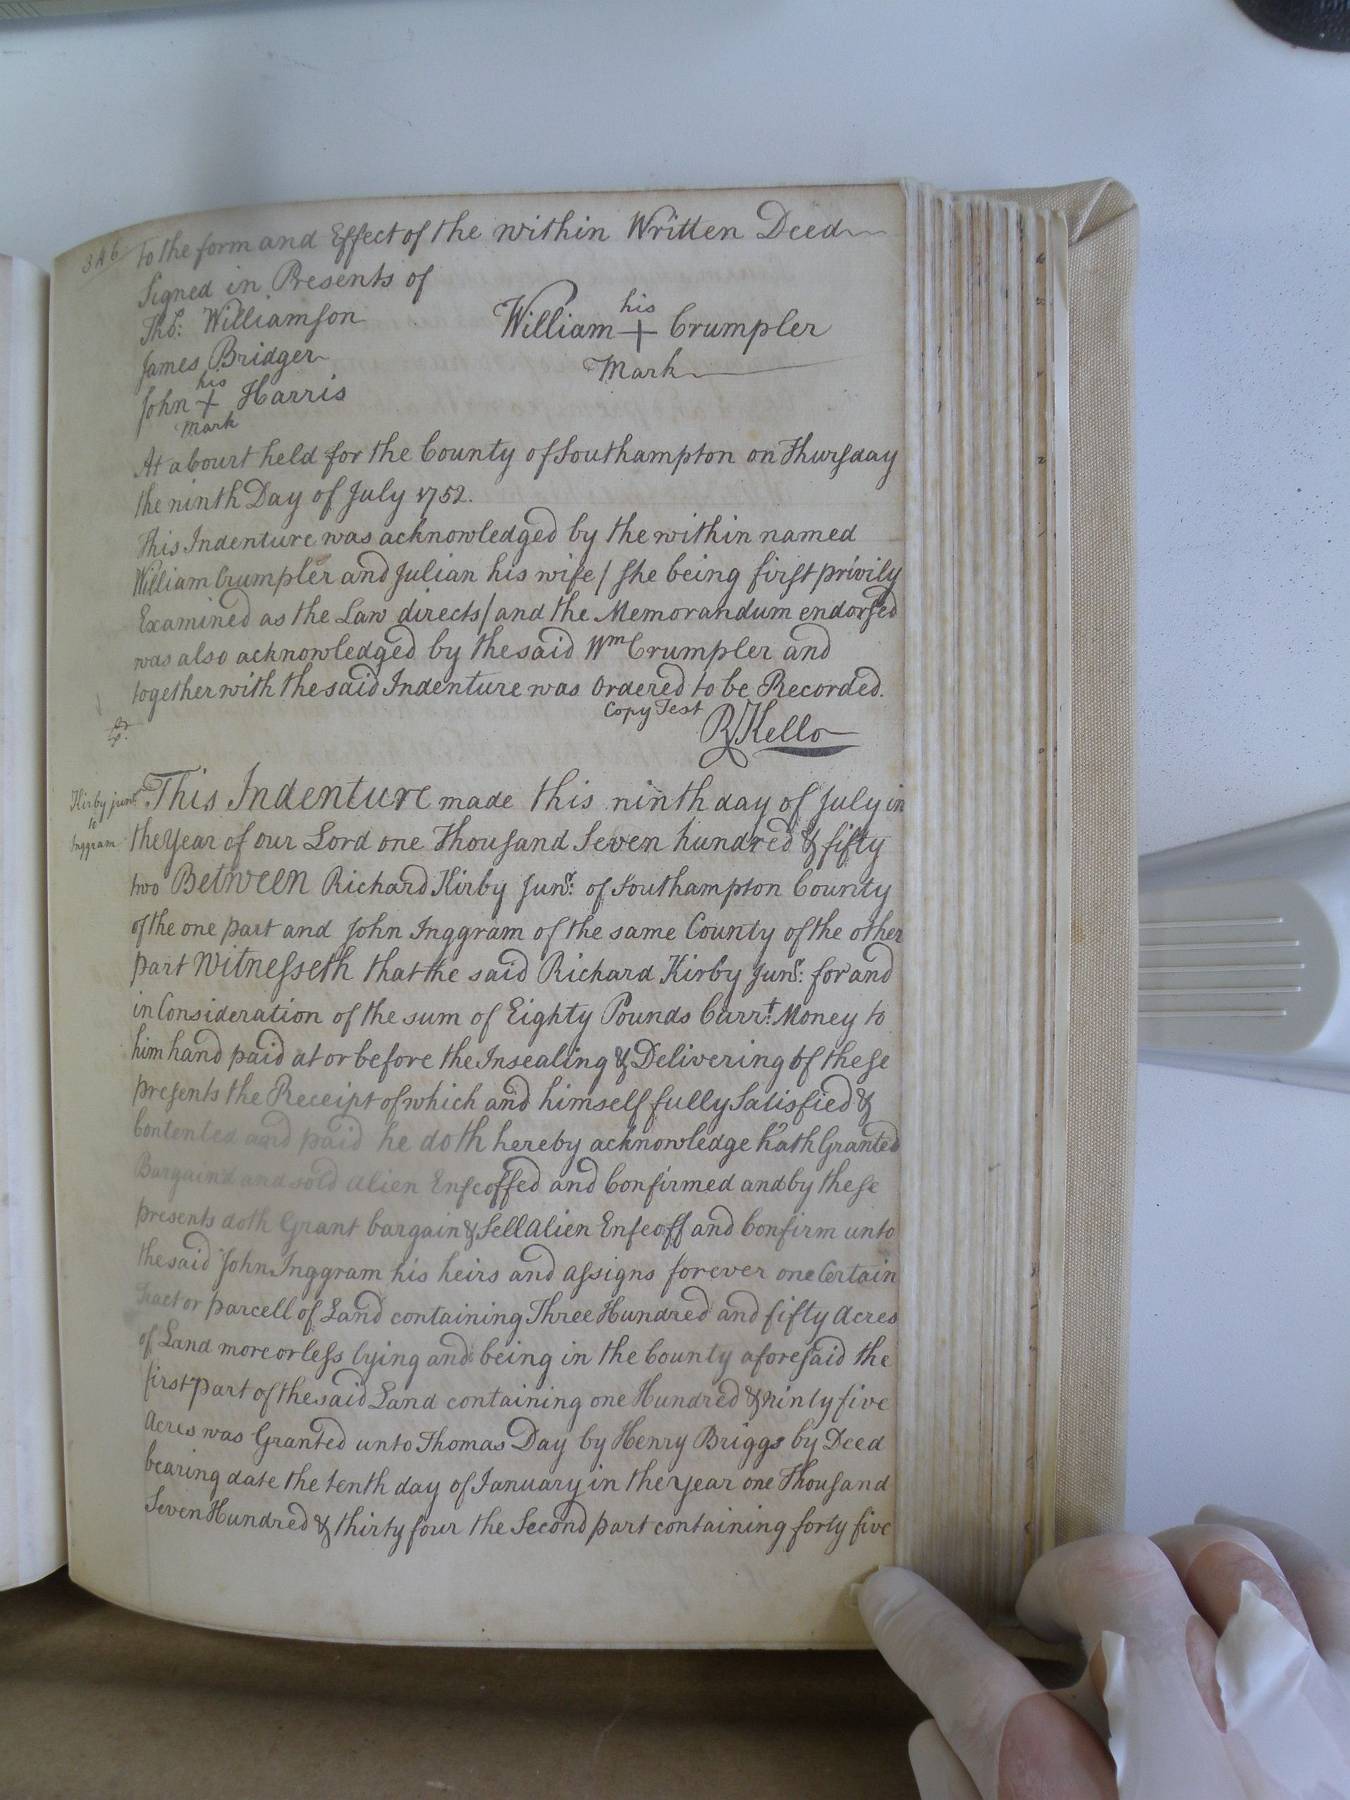 346 to the form and Effect of the within Written Deed
Signed in Presents of
Tho: Williamson
his
William + Crumpler
Mark
James Bridger
his
John + Harris
Mark
At a Court held for the County of Southampton on Thursday
the ninth Day of July 1752.
This Indenture was acknowledged by the within named
William Crumpler and Julian his wife / She being first privily
Examined as the Law directs / and the Memorandum endorsed
was also acknowledged by the said Wm Crumpler and
together with the said Indenture was Ordered to be Recorded.
Copy Test R Kello
Kirby junr. to Inggram
This Indenture made this ninth day of July in
the Year of our Lord one Thousand Seven hundred & fifty
two Between Richard Kirby Junr: of Southampton County
of the one part and John Inggram of the same County of the other
part Witnesseth that the said Richard Kirby Junr: for and
in Consideration of the sum of Eighty Pounds Currt. Money to
him hand paid at or before the Insealing & Delivering of these
presents the Receipt of which and himself fully Satisfied &
Contented and paid he doth hereby acknowledge hath Granted
Bargain'd and sold Alien Enfeoffed and Confirmed and by these
presents doth Grant bargain & Sell Alien Enfeoff and Confirm unto
the said John Inggram his heirs and assigns forever one Certain
Tract or parcell of Land containing Three Hundred and fifty Acres
of Land more or less lying and being in the County aforesaid the
first part of the said Land containing one Hundred & ninty five
Acres was Granted unto Thomas Day by Henry Briggs by Deed
bearing date the tenth day of January in the year one Thousand
Seven Hundred & thirty four the Second part containing forty five